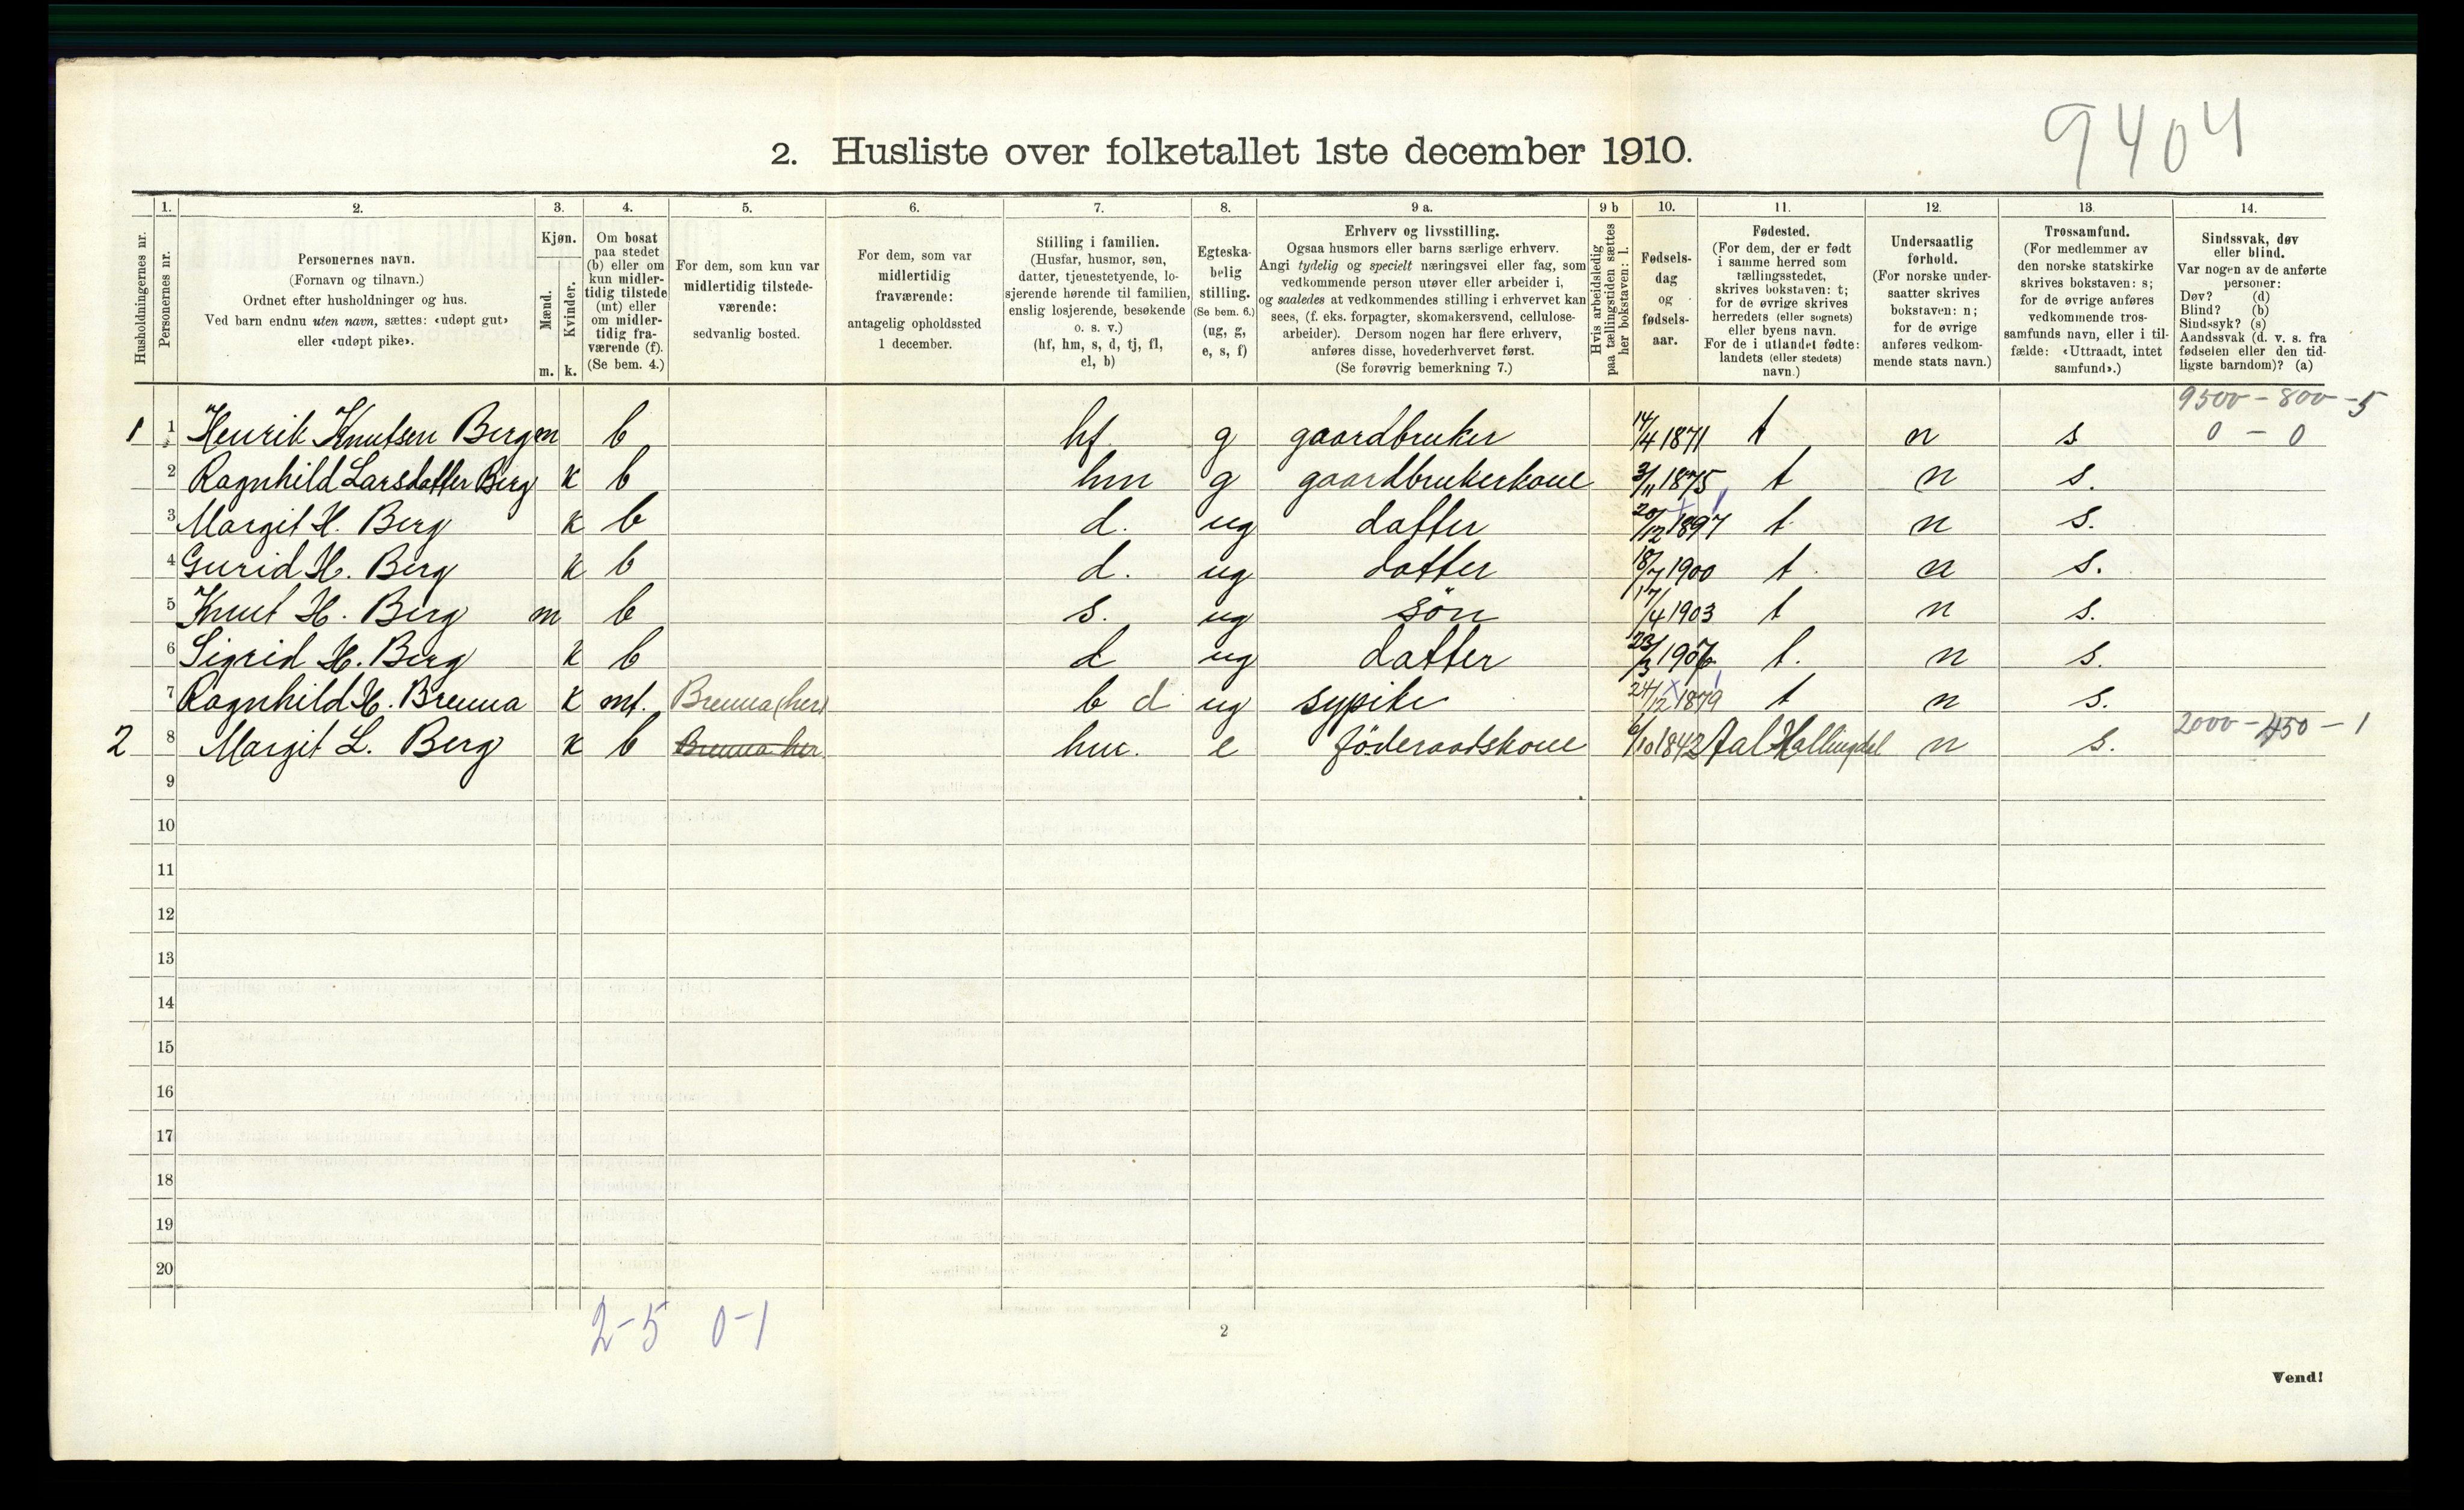 9404
2. Husliste over folketallet 1ste december 1910.
Husholdningernes nr.
1.
Personernes nr.
2.
Personernes navn.
(Fornavn og tilnavn.)
Ordnet efter husholdninger og hus.
Ved barn endnu uten navn, sættes: «udøpt gut»
eller «udøpt pike».
3.
Kjøn.
Mænd.
Kvinder.
m. k.
4.
Om bosat
paa stedet
(b) eller om
kun midler-
tidig tilstede
(mt) eller
om midler-
tidig fra-
værende (f).
(Se bem. 4.)
5.
For dem, som kun var
midlertidig tilstede-
værende:
sedvanlig bosted.
6.
For dem, som var
midlertidig
fraværende:
antagelig opholdssted
1 december.
7.
Stilling i familien.
(Husfar, husmor, søn,
datter, tjenestetyende, lo-
sjerende hørende til familien,
enslig losjerende, besøkende
o. s. v.)
(hf, hm, s, d, tj, fl,
el, b)
8.
Egteska-
belig
stilling.
(Se bem. 6.)
(ug, g,
e, s, f)
9 a.
Erhverv og livsstilling.
Ogsaa husmors eller barns særlige erhverv.
Angi tydelig og specielt næringsvei eller fag, som
vedkommende person utøver eller arbeider i,
og saaledes at vedkommendes stilling i erhvervet kan
sees, (f. eks. forpagter, skomakersvend, cellulose-
arbeider). Dersom nogen har flere erhverv,
anføres disse, hovederhvervet først.
(Se forøvrig bemerkning 7.)
9 b
Hvis arbeidsledig
paa tællingstiden sættes
her bokstaven: l.
10.
Fødsels-
dag
og
fødsels-
aar.
11.
Fødested.
(For dem, der er født
i samme herred som
tællingsstedet,
skrives bokstaven: t;
for de øvrige skrives
herredets (eller sognets)
eller byens navn.
For de i utlandet fødte:
landets (eller stedets)
navn.)
12.
Undersaatlig
forhold.
(For norske under-
saatter skrives
bokstaven: n;
for de øvrige
anføres vedkom-
mende stats navn.)
13.
Trossamfund.
(For medlemmer av
den norske statskirke
skrives bokstaven: s;
for de øvrige anføres
vedkommende tros-
samfunds navn, eller i til-
fælde: «Uttraadt, intet
samfund».)
14.
Sindssvak, døv
eller blind.
Var nogen av de anførte
personer:
Døv? (d)
Blind? (b)
Sindssyk? (s)
Aandssvak (d. v. s. fra
fødselen eller den tid-
ligste barndom)? (a)
9500 - 800 - 5
1 1 Henrik Knutsen Berg m b hf g gaardbruker 14/4 1871 t n s 0 - 0
2 Ragnhild Larsdatter Berg k b hm g gaardbrukerkone 3/11 1875 t n s.
3 Margit H. Berg k b d. ug datter 20/12 1897 t n s.
4 Gurid H. Berg k b d. ug datter 18/7 1900 t. n s.
5 Knut H. Berg m b s. ug søn 17/4 1903 t n s.
6 Sigrid H. Berg k b d ug datter 23/3 1906 t. n s.
7 Ragnhild H. Brenna k mt. Brenna (her) b d ug sypike 24/12 1879 t n s.
2 8 Margit L. Berg k b Brenna her hm. e föderaadskone 6/10 1842 Aal Hallingdal n s. 2000 - 450 - 1
9
10
11
12
13
14
15
16
17
18
19
20
2-5 0-1
2
Vend!